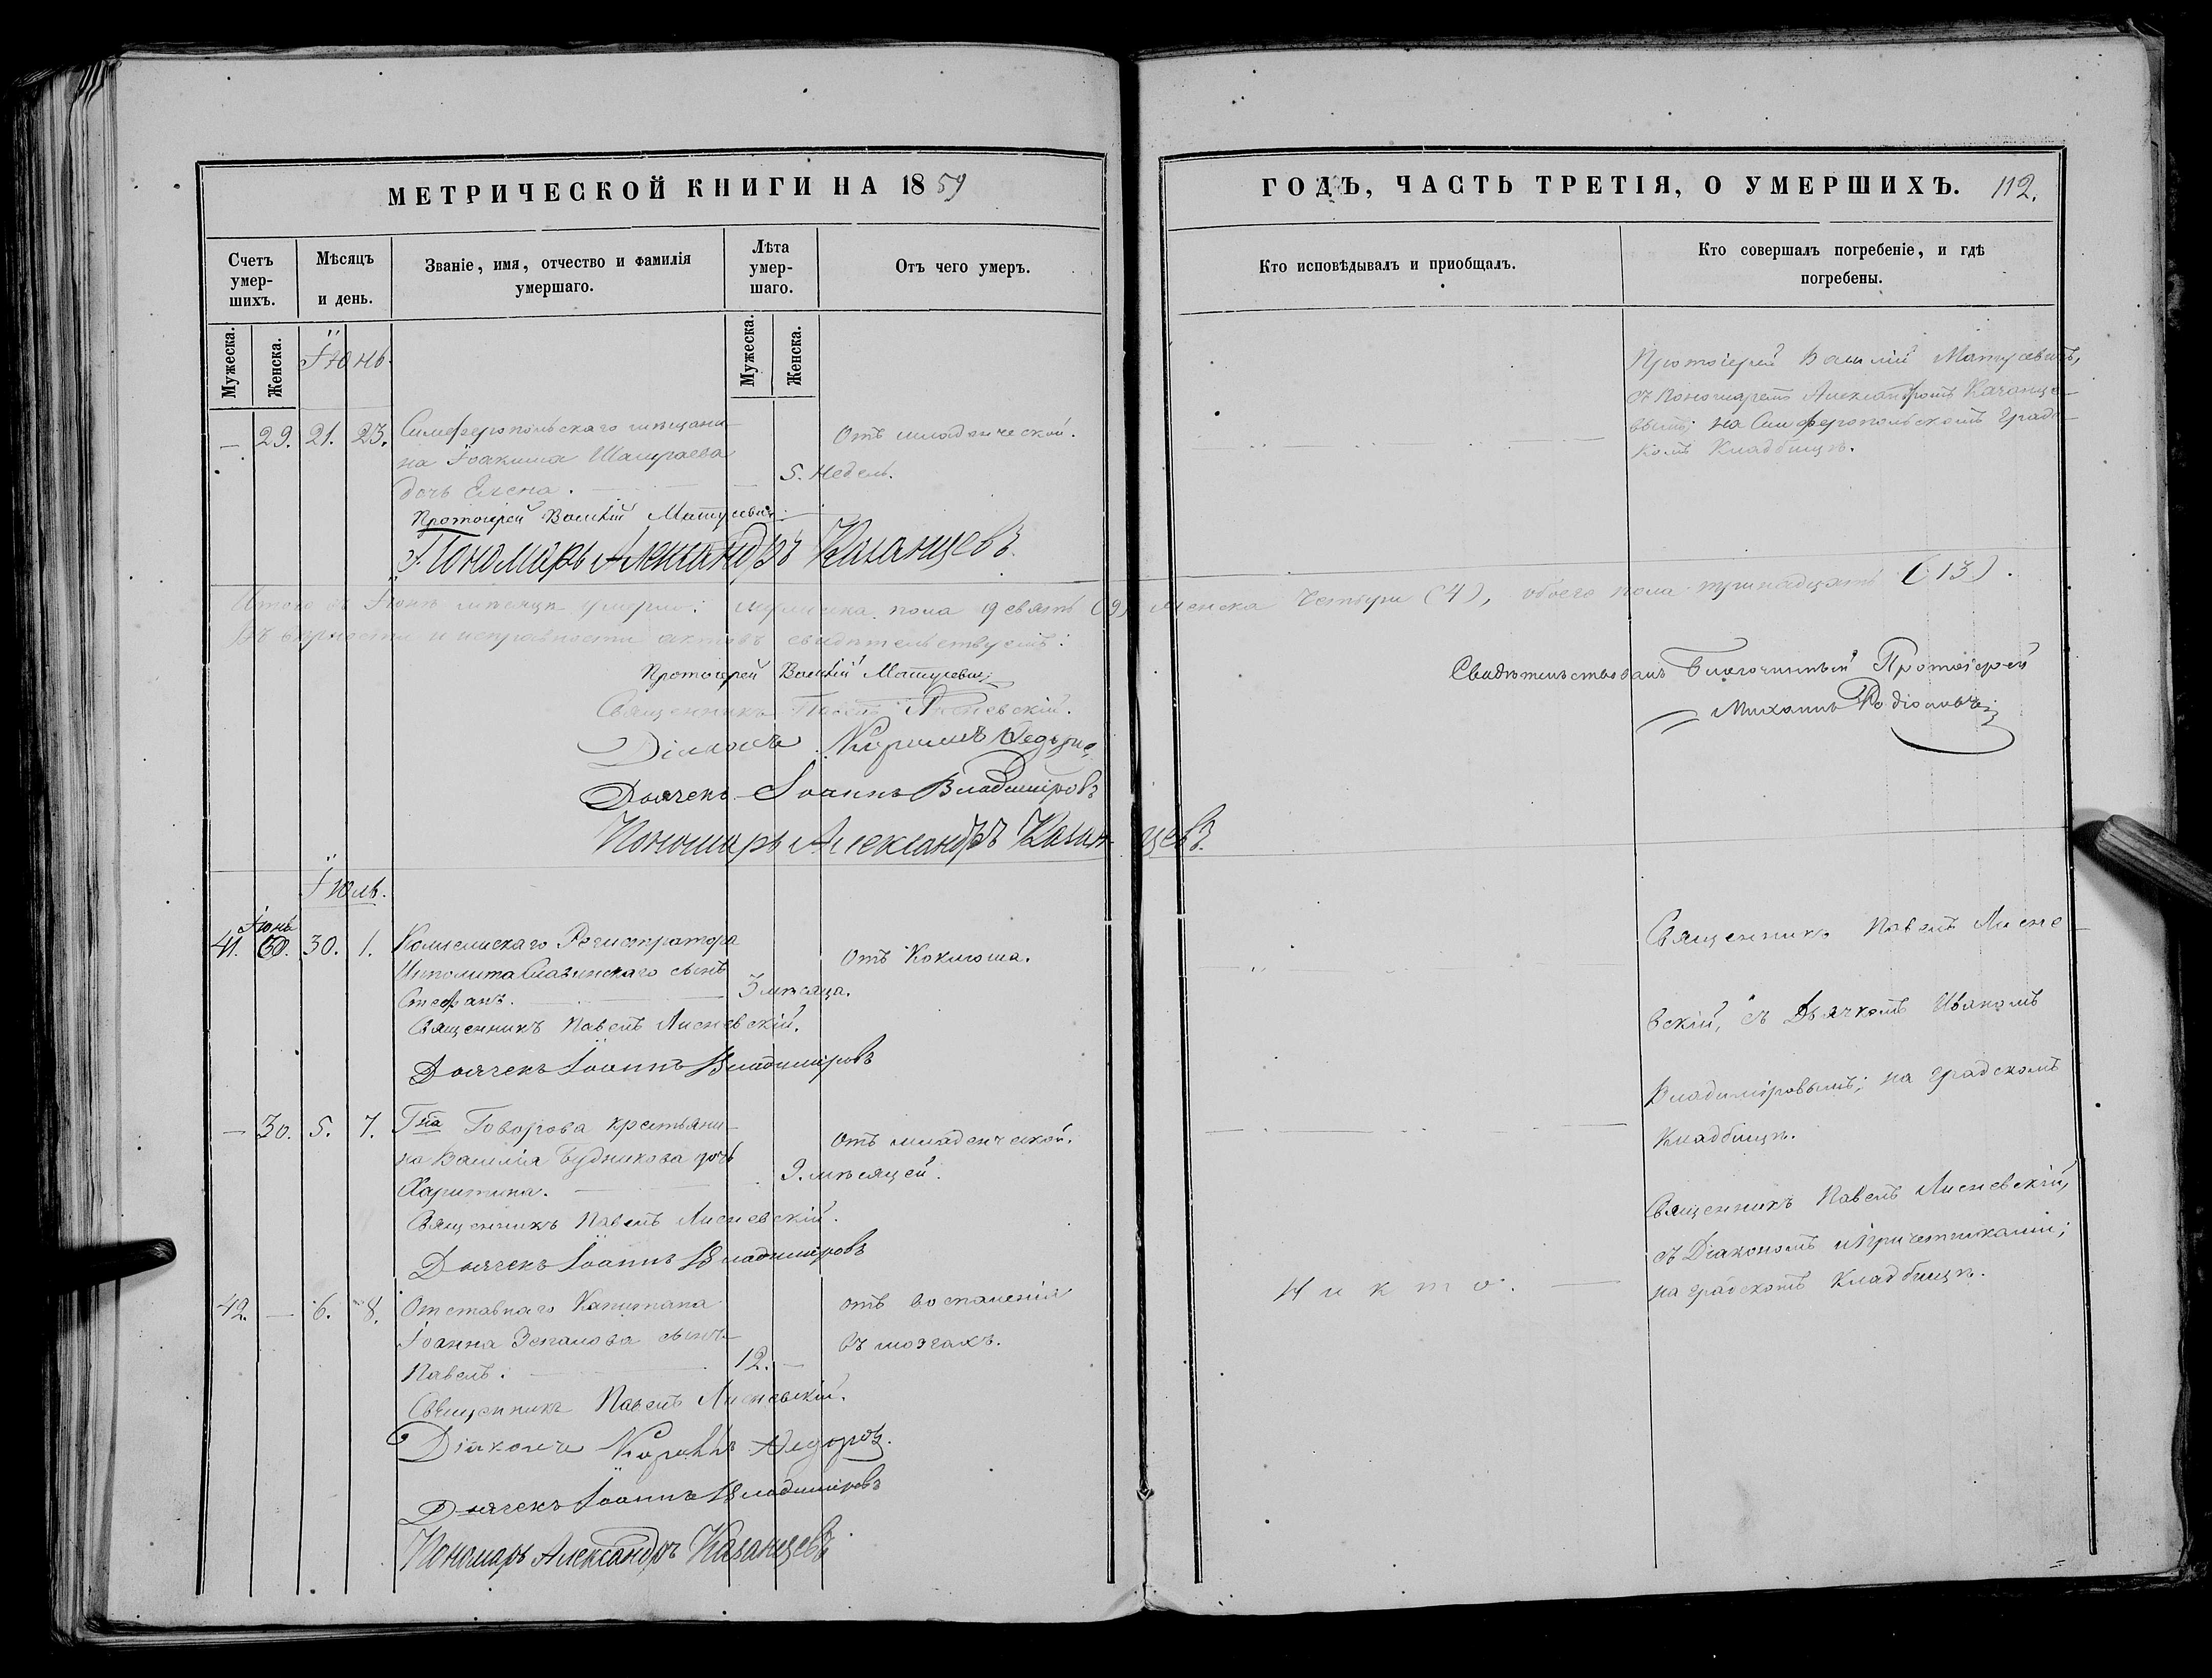 МЕТРИЧЕСКОЙ КНИГИ НА 1859
Счетъ умер-шихъ.
Мѣсяцъ и день.
Званіе, имя, отчество и фамилія умершаго.
Лѣта умер-шаго.
Отъ чего умеръ.
Мужеска.
Женска.
Мужеска.
Женска.
Іюнь.
— 29. 21. 23. Симферопольскаго мѣщани-
на Іоакима
дочь Елена. — 5. недель.
Отъ младенческой.
Протоіерей Василій Матусевичъ
Пономарь Александръ Казанцевъ.
Итого въ Іюнѣ мѣсяцѣ умерло: мужеска пола девять (9) женска четыри (4), обоего пола тринадцать (13).
Въ вѣрности и исправности актовъ свидѣтельствуетъ:
Протоіерей Василій Матусевичъ
Священникъ Павелъ Лисневскій.
Діаконъ Кириллъ
Дьячекъ Іоаннъ Владиміровъ
Пономарь Александръ Казанцевъ.
Іюль.
Іюнь
41. 30. 1. Коллежскаго Регистратора
Ипполита сынъ
Стефанъ. — 3 мѣсяца.
Отъ Коклюша.
Священникъ Павелъ Лисневскій.
Дьячекъ Іоаннъ Владиміровъ
— 30. 5. 7. Гна Говорова крестьяни-
на Василія Будникова дочь
Харитина. — 9. мѣсяцей.
Отъ младенческой.
Священникъ Павелъ Лисневскій.
Дьячекъ Іоаннъ Владиміровъ
42. — 6. 8. Отставнаго Капитана
Іоанна сынъ
Павелъ. — 12. —
отъ воспаленія
въ мозгахъ.
Священникъ Павелъ Лисневскій.
Діаконъ Кириллъ
Дьячекъ Іоаннъ Владиміровъ
Пономарь Александръ Казанцевъ
ГОДЪ, ЧАСТЬ ТРЕТІЯ, О УМЕРШИХЪ. 112.
Кто исповѣдывалъ и приобщалъ.
Кто совершалъ погребеніе, и гдѣ погребены.
Протоіерей Василій Матусевичъ,
съ Пономаремъ Александромъ Казанце-
вымъ; на Симферопольскомъ Градс-
комъ Кладбищѣ.
Свидѣтельствовалъ Благочинный Протоіерей
Михаилъ Родіоновъ
Священникъ Павелъ Лисне-
вскій, съ Дьячкомъ Иваномъ
Владиміровымъ; на градскомъ
Кладбищѣ.
Священникъ Павелъ Лисневскій,
съ Діакономъ и причетниками;
на градскомъ Кладбищѣ.
Никто.